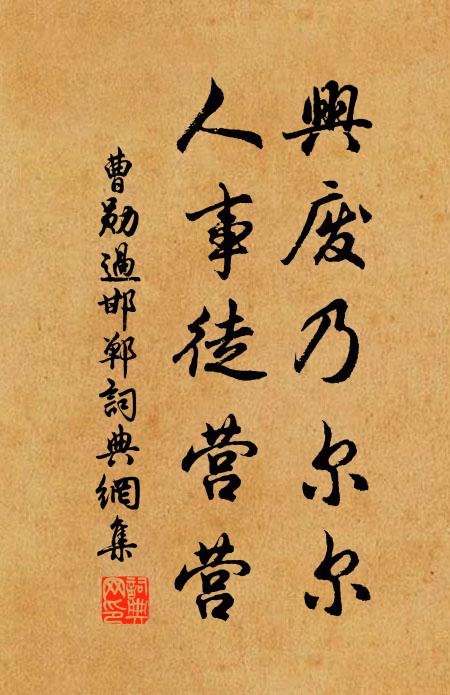 興废乃尔尔
人事徒营营
曹勋過邯鄲詞典網集
詞典网印